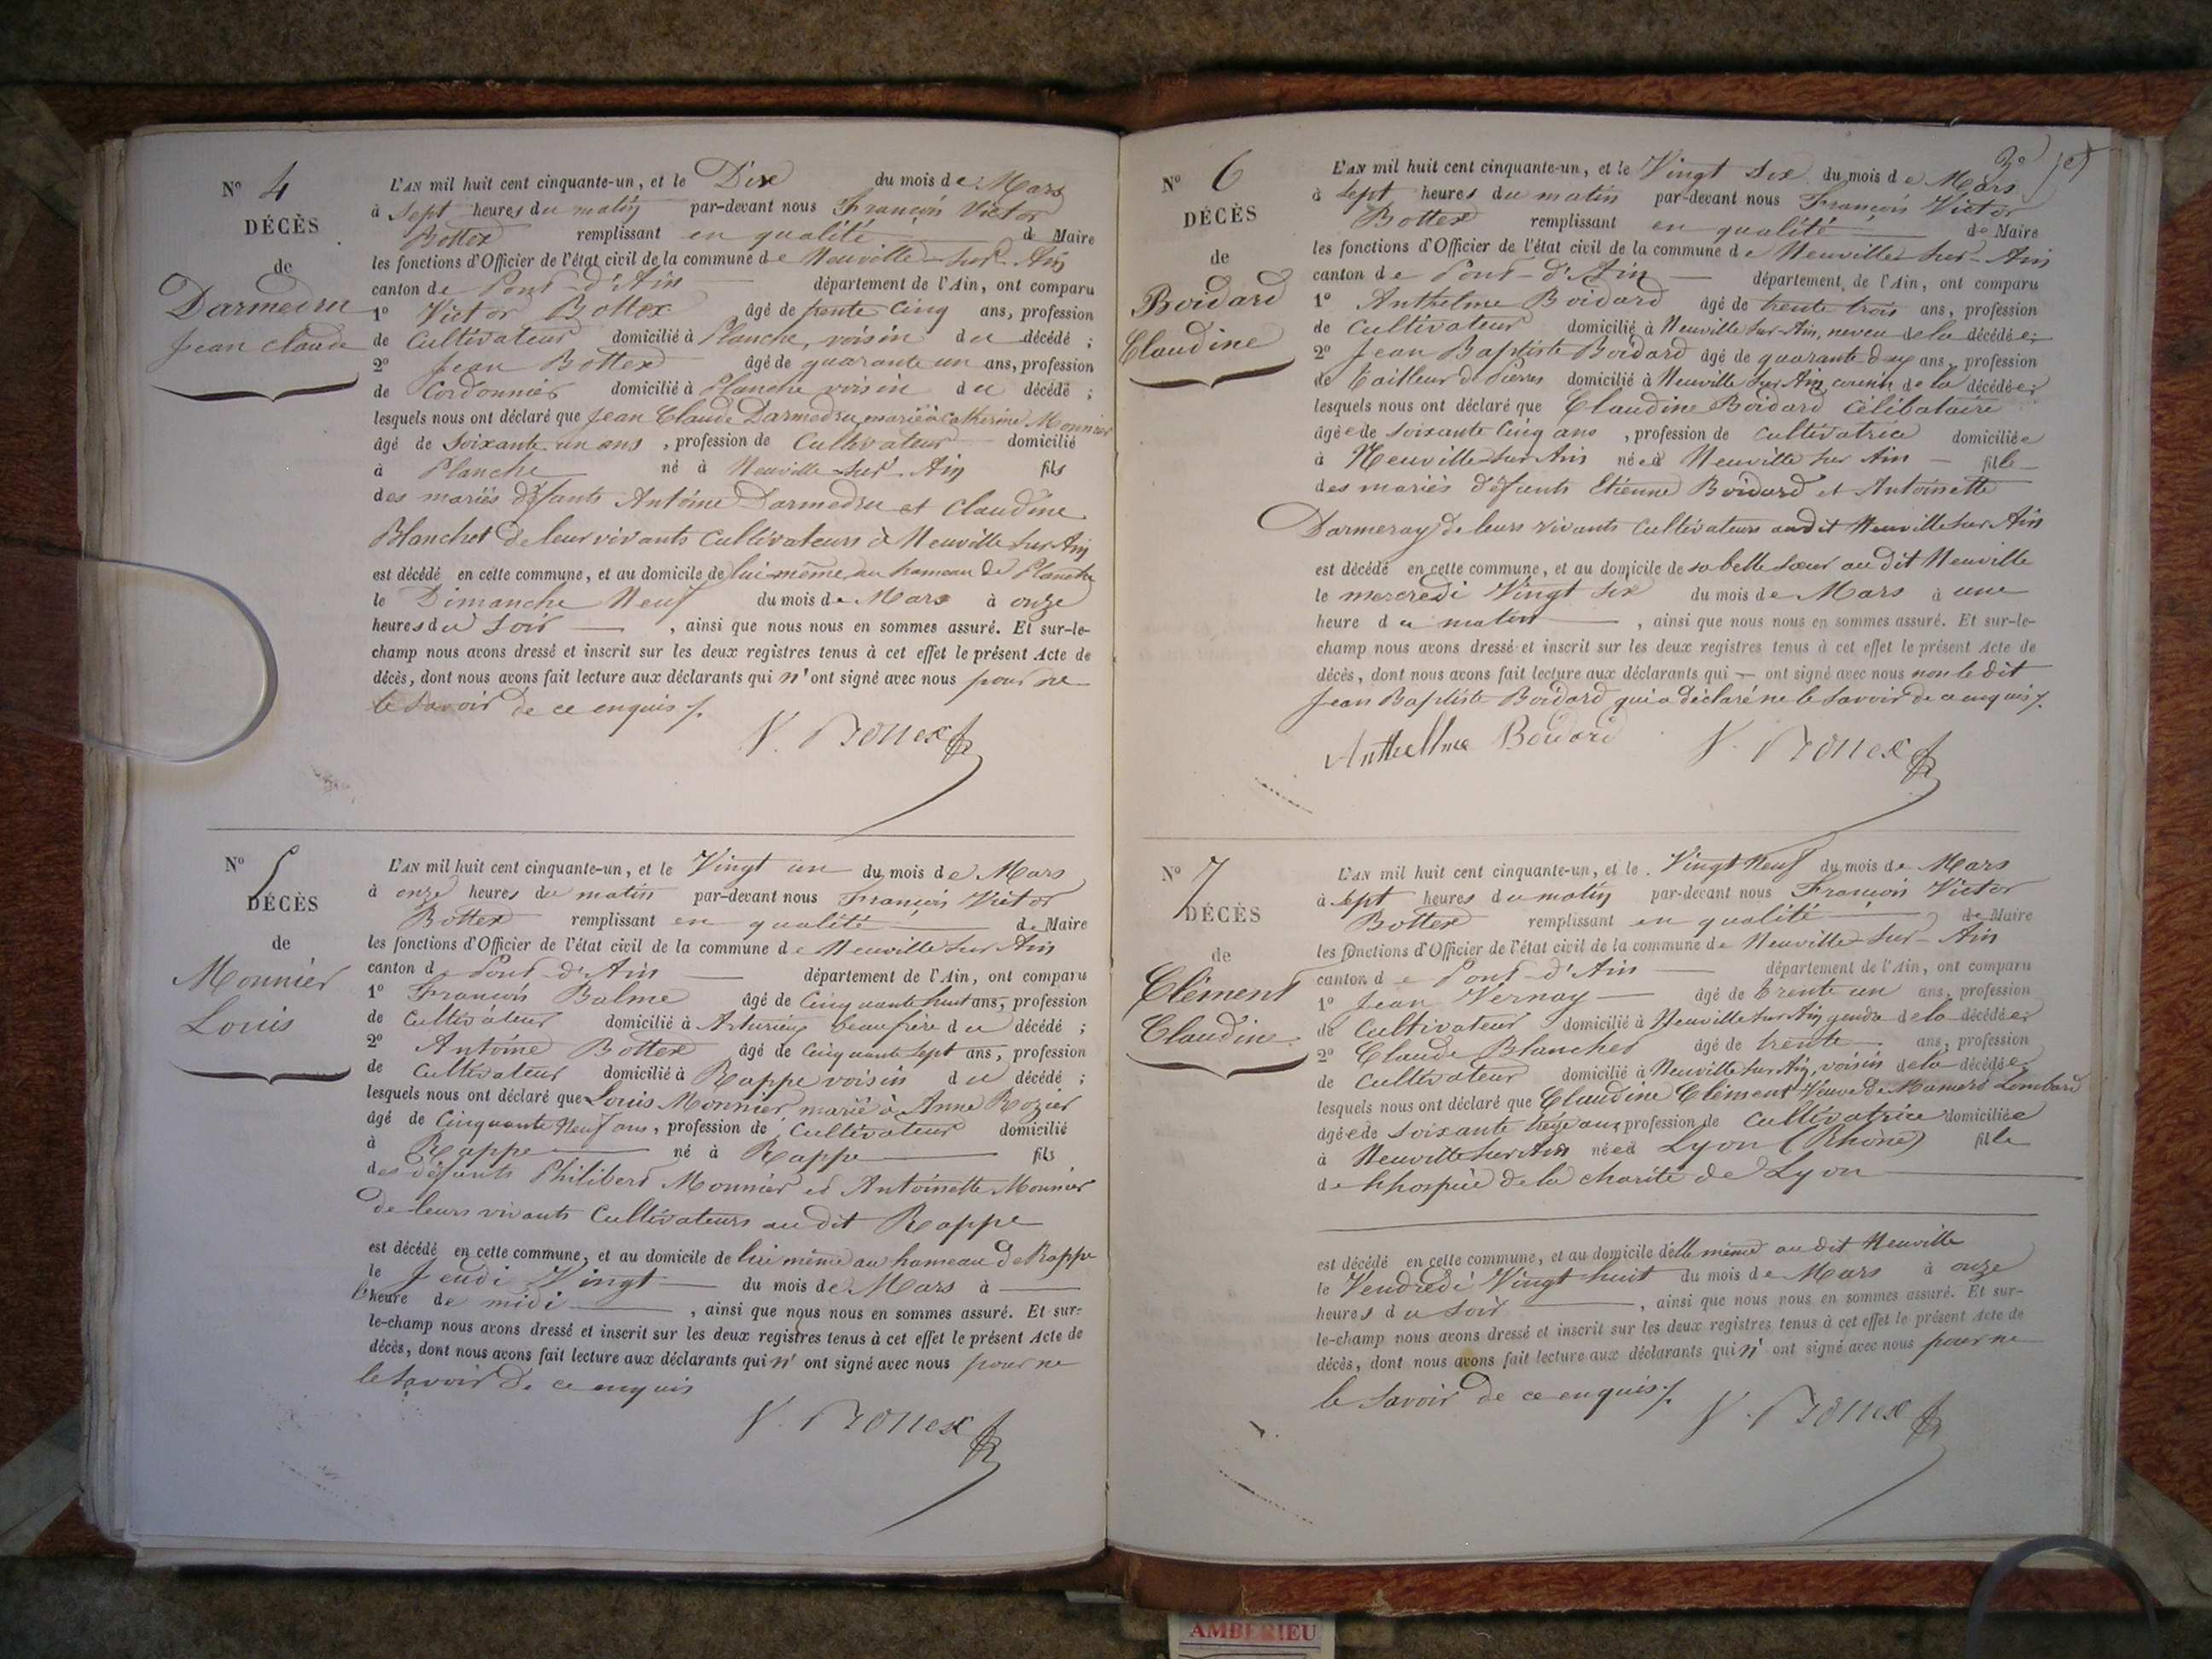 N° 4
DÉCÈS
de
Darmedru
Jean Claude
L'AN mil huit cent cinquante-un, et le Dix du mois de Mars
à Sept heures du matin par-devant nous François Victor
Bottex remplissant en qualité de Maire
les fonctions d'Officier de l'état civil de la commune de Neuville-sur-Ain
canton de Pont-d'Ain département de l'Ain, ont comparu
1° Victor Bottex âgé de trente Cinq ans, profession
de Cultivateur domicilié à Planche, voisin du décédé ;
2° Jean Bottex âgé de quarante un ans, profession
de Cordonnier domicilié à Planche voisin du décédé ;
lesquels nous ont déclaré que Jean Claude Darmedru, marié à Catherine Monnier
âgé de Soixante un ans, profession de Cultivateur domicilié
à Planche né à Neuville-sur-Ain fils
des mariés défunts Antoine Darmedru et Claudine
Blanchet de leur vivants Cultivateurs à Neuville sur Ain
est décédé en cette commune, et au domicile de lui même au hameau de Planche
le Dimanche Neuf du mois de Mars à onze
heures du Soir, ainsi que nous nous en sommes assuré. Et sur-le-
champ nous avons dressé et inscrit sur les deux registres tenus à cet effet le présent Acte de
décès, dont nous avons fait lecture aux déclarants qui n'ont signé avec nous pour ne
le Savoir de ce enquis /.
V. Bottex
N° 5
DÉCÈS
de
Monnier
Louis
L'AN mil huit cent cinquante-un, et le Vingt un du mois de Mars
à onze heures du matin par-devant nous François Victor
Bottex remplissant en qualité de Maire
les fonctions d'Officier de l'état civil de la commune de Neuville sur Ain
canton de Pont-d'Ain département de l'Ain, ont comparu
1° François Balme âgé de Cinquante huit ans, profession
de Cultivateur domicilié à beaufrère du décédé ;
2° Antoine Bottex âgé de Cinquante Sept ans, profession
de Cultivateur domicilié à Rappe voisin du décédé ;
lesquels nous ont déclaré que Louis Monnier, marié à Anne Rozier
âgé de Cinquante Neuf ans, profession de Cultivateur domicilié
à Rappe né à Rappe fils
des défunts Philibert Monnier et Antoinette Monnier
de leurs vivants Cultivateurs au dit Rappe
est décédé en cette commune, et au domicile de lui même au hameau de Rappe
le Jeudi Vingt du mois de Mars à
l'heure de midi, ainsi que nous nous en sommes assuré. Et sur-
le-champ nous avons dressé et inscrit sur les deux registres tenus à cet effet le présent Acte de
décès, dont nous avons fait lecture aux déclarants qui n'ont signé avec nous pour ne
le Savoir de ce enquis
V. Bottex
N° 6
DÉCÈS
de
Boidard
Claudine
L'AN mil huit cent cinquante-un, et le Vingt Six du mois de Mars
à Sept heures du matin par-devant nous François Victor
Bottex remplissant en qualité de Maire
les fonctions d'Officier de l'état civil de la commune de Neuville sur-Ain
canton de Pont-d'Ain département de l'Ain, ont comparu
1° Anthelme Boidard âgé de trente trois ans, profession
de Cultivateur domicilié à Neuville sur Ain, neveu de la décédée ;
2° Jean Baptiste Boidard âgé de quarante deux ans, profession
de Tailleur de Pierres domicilié à Neuville sur Ain, cousin de la décédée ;
lesquels nous ont déclaré que Claudine Boidard Célibataire
âgée de soixante Cinq ans, profession de Cultivatrice domiciliée
à Neuville sur Ain née à Neuville sur Ain fille
des mariés défunts Etienne Boidard et Antoinette
Darmeray de leurs vivants Cultivateurs audit Neuville sur Ain
est décédé en cette commune, et au domicile de sa belle sœur au dit Neuville
le mercredi Vingt six du mois de Mars à une
heure du matin, ainsi que nous nous en sommes assuré. Et sur-le-
champ nous avons dressé et inscrit sur les deux registres tenus à cet effet le présent Acte de
décès, dont nous avons fait lecture aux déclarants qui ont signé avec nous non le dit
Jean Baptiste Boidard qui a déclaré ne le Savoir de ce enquis /.
Anthellme Boidard V. Bottex
N° 7
DÉCÈS
de
Clément
Claudine
L'AN mil huit cent cinquante-un, et le Vingt Neuf du mois de Mars
à Sept heures du matin par-devant nous François Victor
Bottex remplissant en qualité de Maire
les fonctions d'Officier de l'état civil de la commune de Neuville-sur-Ain
canton de Pont-d'Ain département de l'Ain, ont comparu
1° Jean Vernay âgé de trente un ans, profession
de Cultivateur domicilié à Neuville sur Ain gendre de la décédée ;
2° Claude Blanchet âgé de trente ans, profession
de Cultivateur domicilié à Neuville sur Ain, voisin de la décédée
lesquels nous ont déclaré que Claudine Clément Veuve de Mamert Lombard
âgée de soixante treize ans, profession de Cultivatrice domiciliée
à Neuville sur Ain née à Lyon (Rhône) fille
de l'hospice de la charité de Lyon
est décédé en cette commune, et au domicile d'elle même au dit Neuville
le Vendredi Vingt huit du mois de Mars à onze
heures du Soir, ainsi que nous nous en sommes assuré. Et sur-
le-champ nous avons dressé et inscrit sur les deux registres tenus à cet effet le présent Acte de
décès, dont nous avons fait lecture aux déclarants qui n'ont signé avec nous pour ne
le Savoir de ce enquis /.
V. Bottex
AMBERIEU